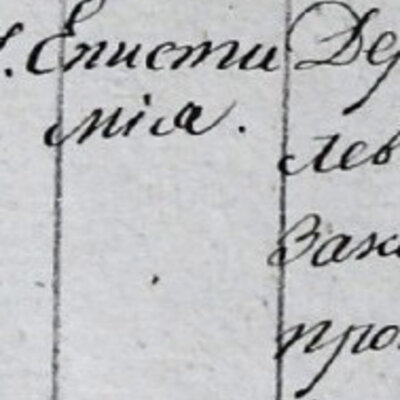 Еписти
мія.
Де
лев
зак
про